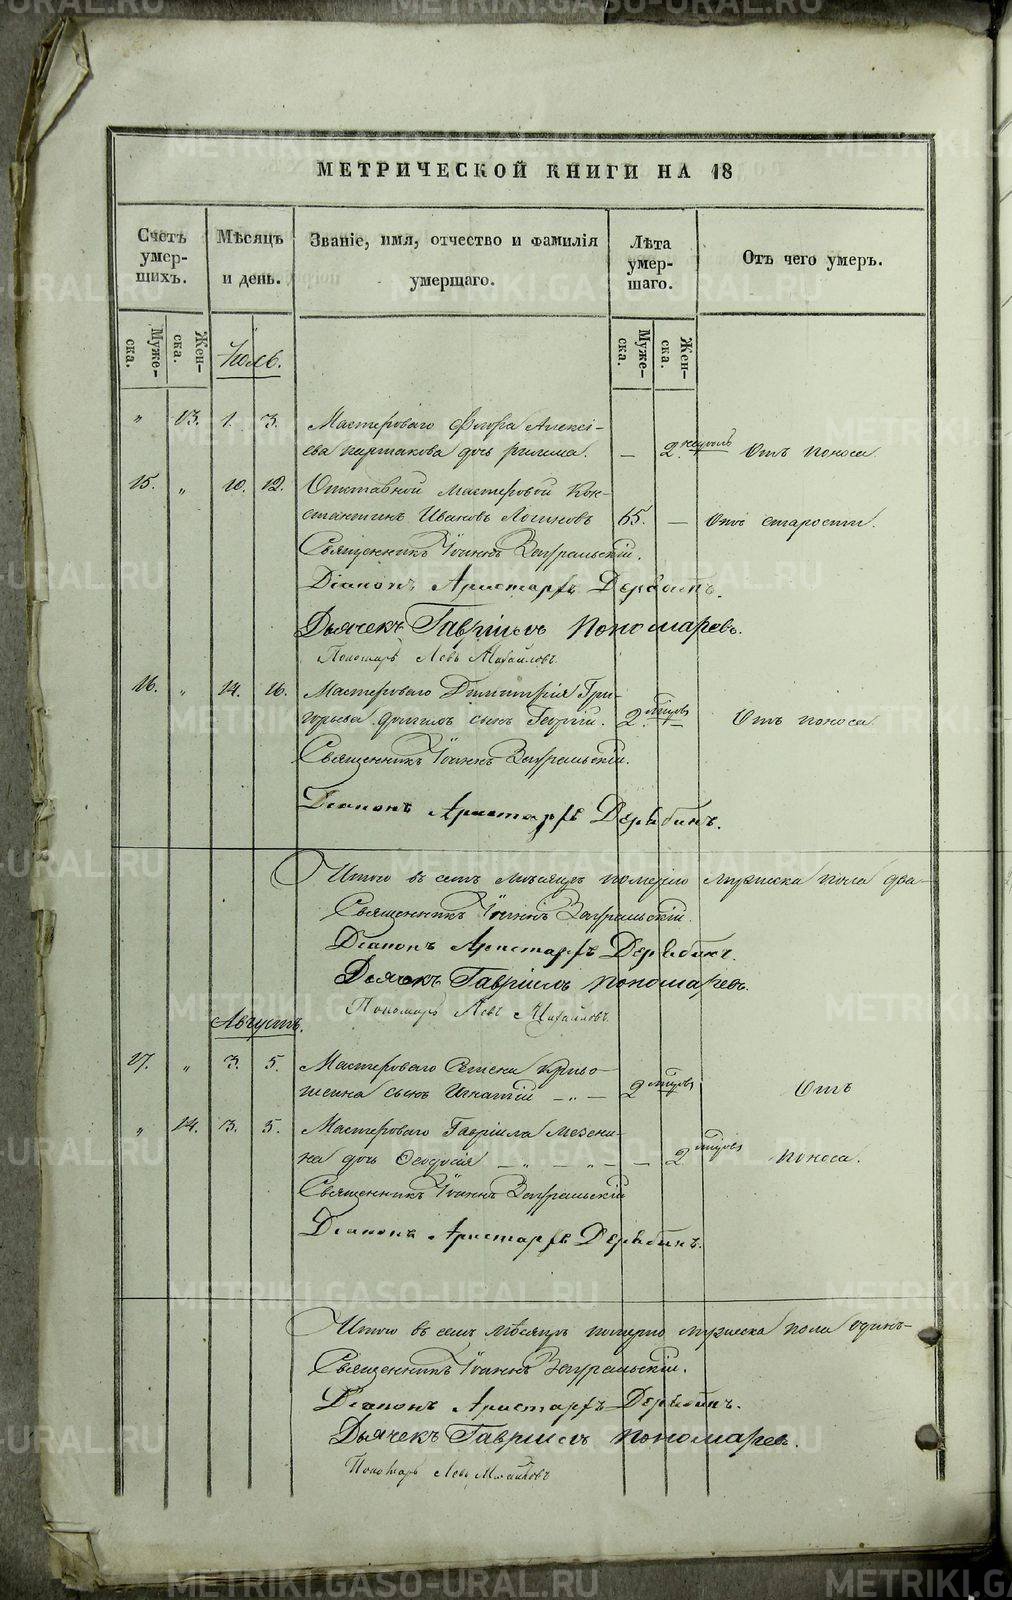 МЕТРИЧЕСКОЙ КНИГИ НА 18
Счетъ умер- шихъ.
Мѣсяцъ и день.
Званіе, имя, отчество и фамилія умершаго.
Лѣта умер- шаго.
Отъ чего умеръ.
Муже- ска.
Жен- ска.
Муже- ска.
Жен- ска.
Іюль.
" 13. 1. 3. Мастероваго Флора Алексѣ-
ева дочь — 2. Отъ поноса.
15. " 10. 12. Отставной мастеровой Кон-
стантинъ Ивановъ Логиновъ 65. — Отъ старости.
Священникъ Іоаннъ Зауральскій.
Діаконъ Аристархъ Дерябинъ.
Дьячекъ Гавріилъ Пономаревъ.
Пономарь Левъ Михайловъ.
16. " 14. 16. Мастероваго Димитрія Гри-
горьева сынъ Георгій. 2. — Отъ поноса.
Священникъ Іоаннъ Зауральскій.
Діаконъ Аристархъ Дерябинъ.
Итого въ семъ мѣсяцѣ померло мужеска пола два—
Священникъ Іоаннъ Зауральскій.
Діаконъ Аристархъ Дерябинъ.
Дьячекъ Гавріилъ Пономаревъ.
Пономарь Левъ Михайловъ.
Августъ.
17. " 3. 5. Мастероваго
сынъ Игнатій — " — 2 Отъ
" 14. 3. 5. Мастероваго Гавріила Мезени-
на дочь Ѳеодосія — " — " — — 2 поноса.
Священникъ Іоаннъ Зауральскій
Діаконъ Аристархъ Дерябинъ.
Итого въ семъ мѣсяцѣ померло мужеска пола одинъ—
Священникъ Іоаннъ Зауральскій.
Діаконъ Аристархъ Дерябинъ.
Дьячекъ Гавріилъ Пономаревъ.
Пономарь Левъ Михайловъ
METRIKI.GASO-URAL.RU